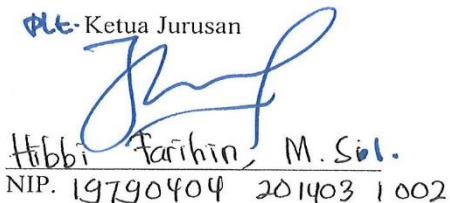 Plt. Ketua Jurusan
Hibbi Farihin, M. S.I.
NIP. 19790404 201403 1 002